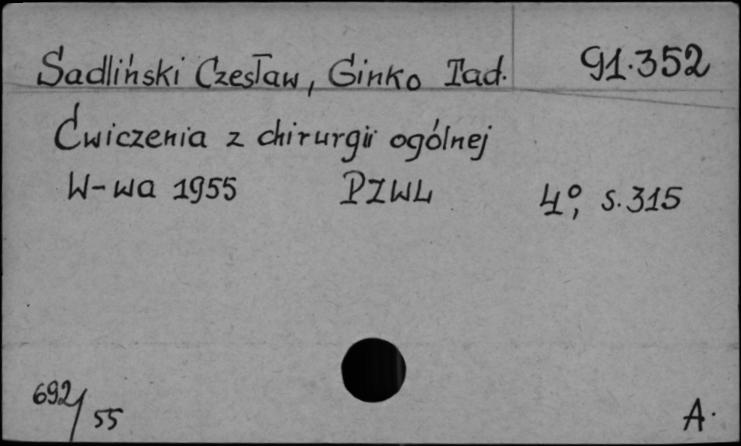 Sadliński Czesław, Ginko Tad. 91.352
Ćwiczenia z chirurgii ogólnej
W-wa 1955 PZWL 4°, s. 315
692/55 A.